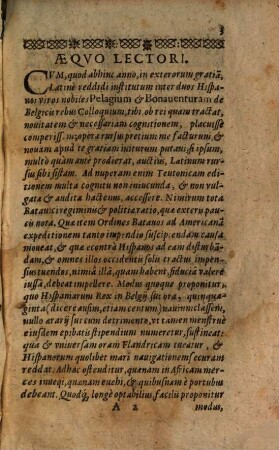 3
ÆQVO LECTORI.
CVM, quod abhinc anno, in exterorum gratiã,
Latinè reddidi institutum inter duos Hispa-
nos viros nobiles Pelagium & Bonauenturam de
Belgicis rebus Colloquium, tibi, ob rei quam tractat,
nouitatem & necessariam cognitionem, placuisse
comperissẽ, me operæ rursus pretium me facturum, &
nouam apud te gratiam initurum putaui, si ipsum,
multò quàm ante prodierat, auctius, Latinum rur-
sus sibi sistam. Ad nuperam enim Teutonicam edi-
tionem multa cognitu non iniucunda, & non vul-
gata & audita hactenus, accessere. Nimirum tota
Bataui regiminis & politiæ ratio, quæ exteru pau-
cis nota. Quæ item Ordines Batauos ad Americanã
expeditionem tanto impendio suscipiendam cau-
moueat, & quæ econtrà Hispanos ad eam disturbã-
dam, & omnes illos occidentis solis tractus, impen-
sius tuendos, nimiâ illâ, quam habent, fiducia valere
iussâ, debeat impellere. Modus quoque proponitur,
quo Hispaniarum Rex in Belgij sit ora, quinqua-
ginta (dicere ausim, etiam centum) nauium classem,
nullo ærarij sui cum detrimento, vt tamen menstrue
eiusdem epibatis stipendium numeretur, sustineat:
quæ & vniuersam oram Flandricam tueatur, &
Hispanorum quolibet mari nauigationem securam
reddat. Adhæc ostenditur, quænam in Africam mer-
ces inuehi, quænam euehi, & quibusnam è portubus
debeant. Quodq, longè optabilius, facili proponitur
A 2 modus,